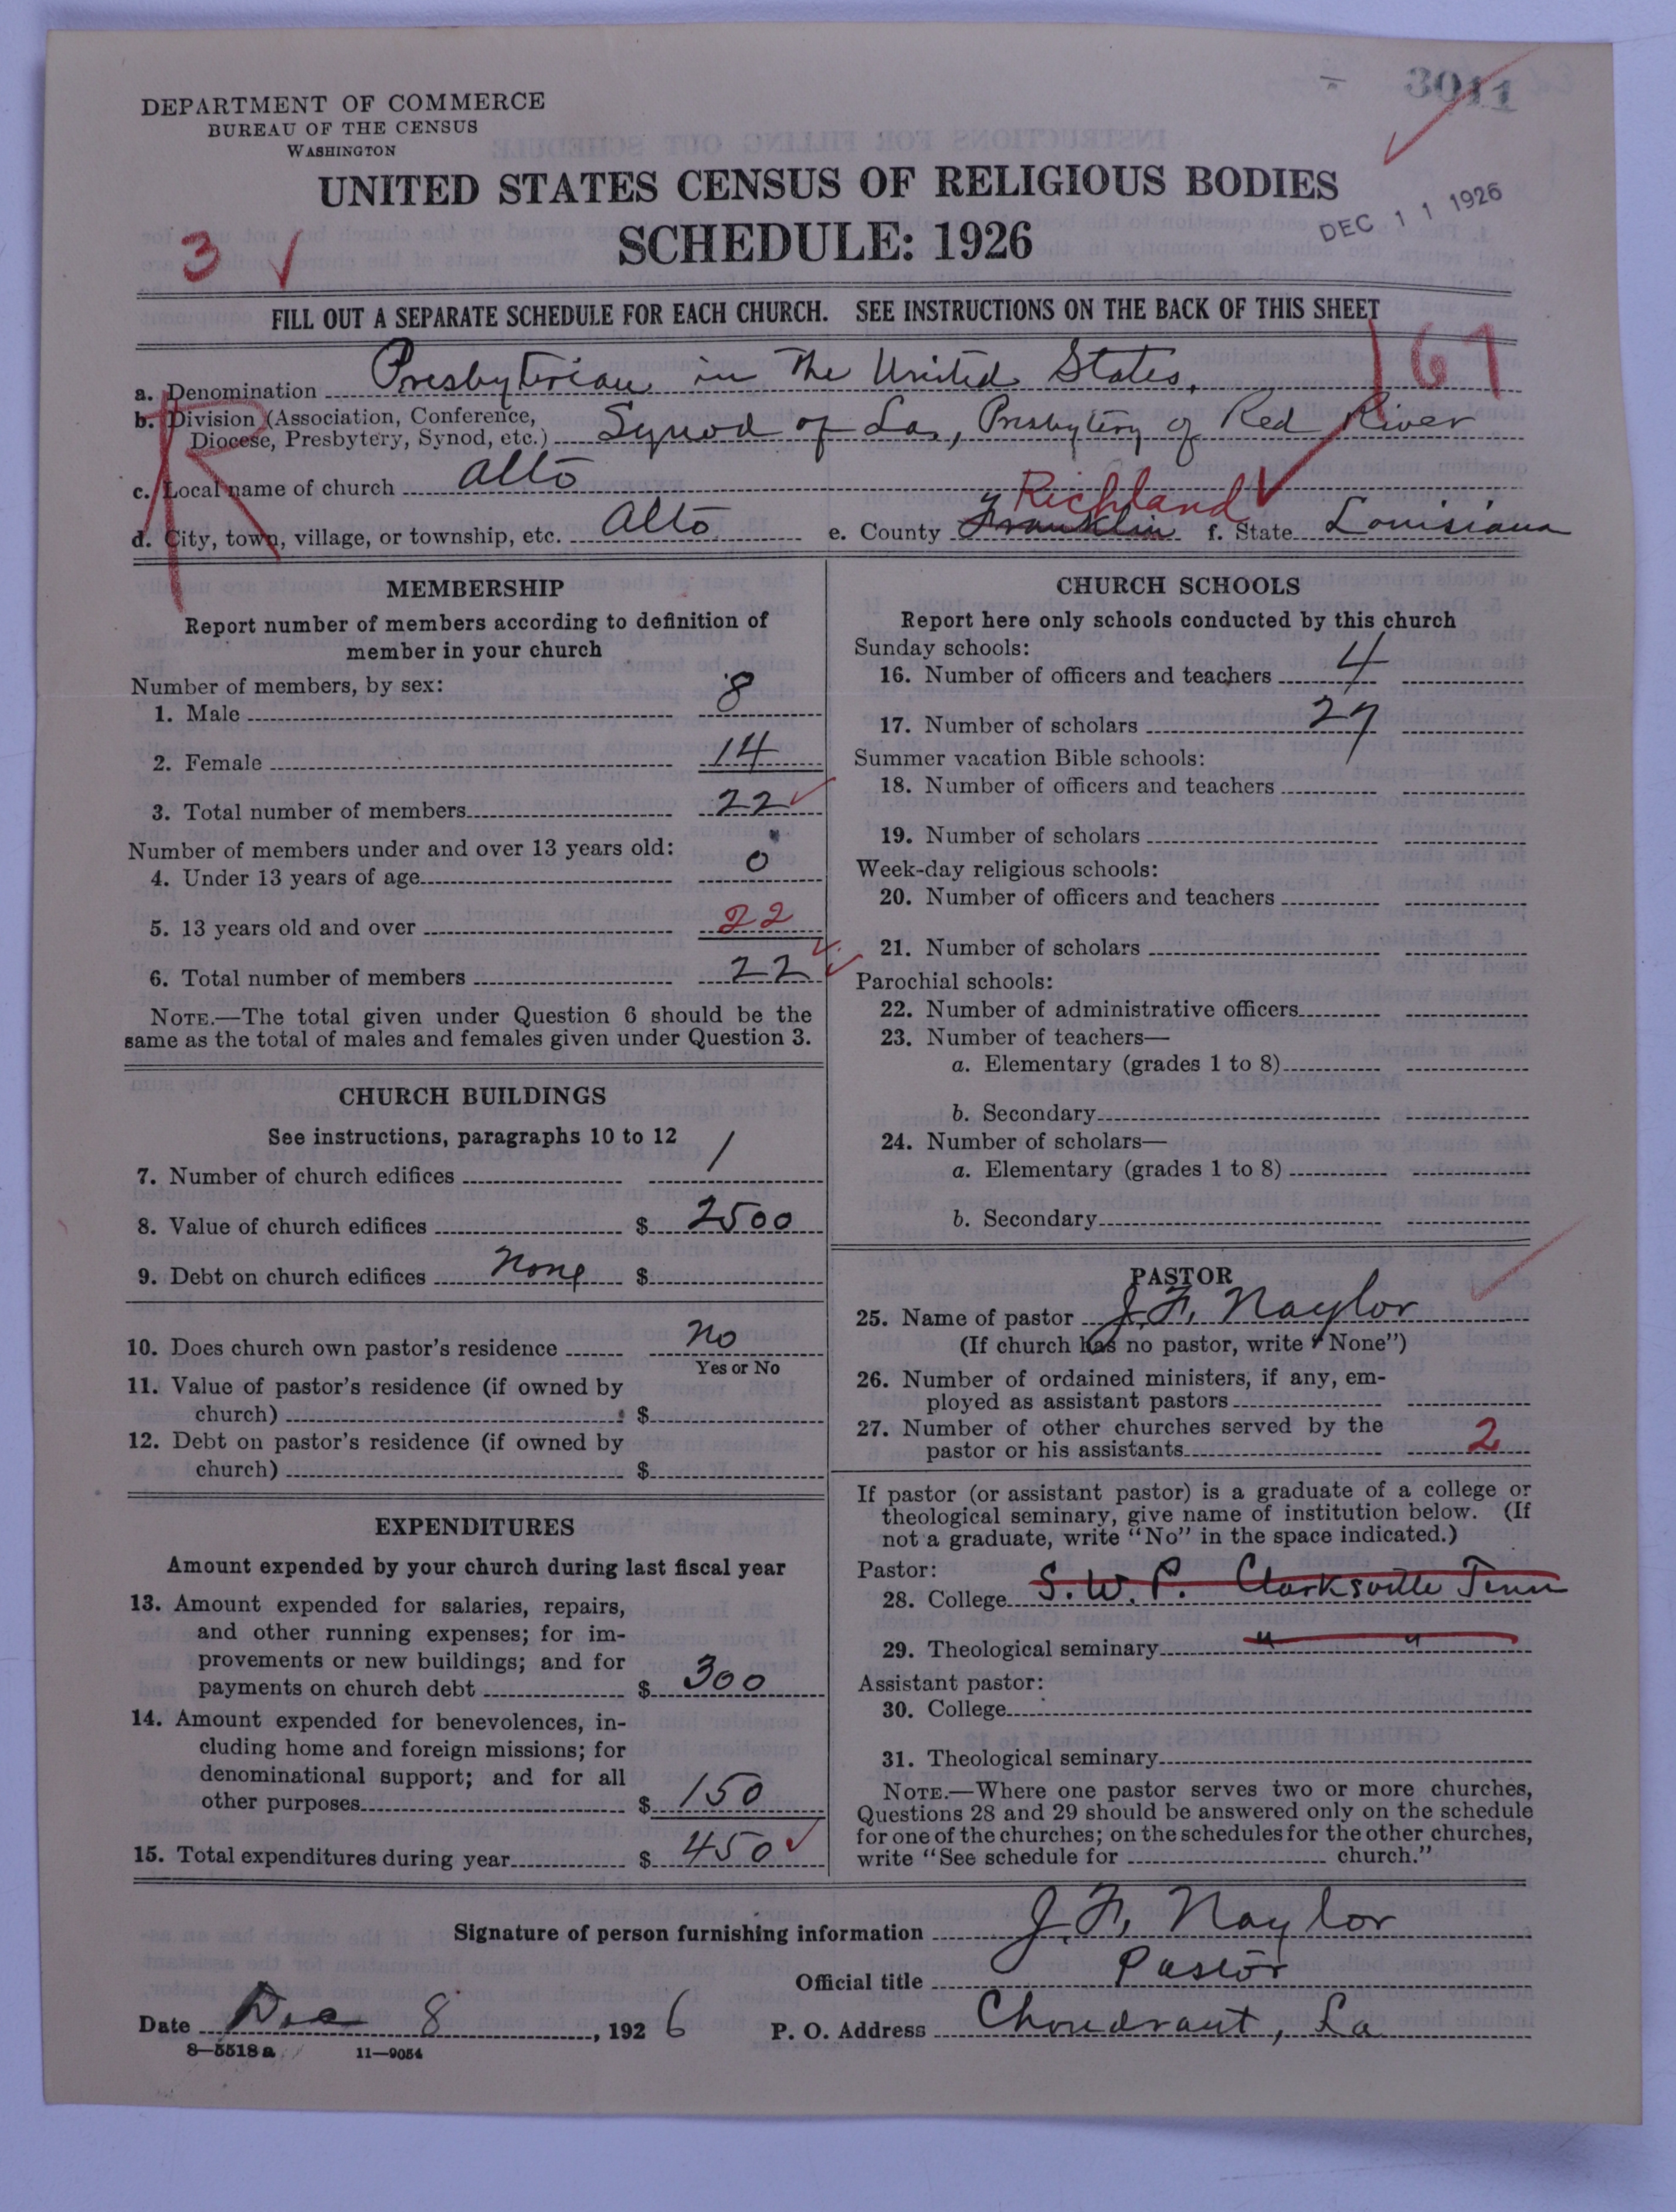 3011
DEPARTMENT OF COMMERCE
BUREAU OF THE CENSUS
WASHINGTON
UNITED STATES CENSUS OF RELIGIOUS BODIES
SCHEDULE: 1926
DEC 11 1926
3 ✓
FILL OUT A SEPARATE SCHEDULE FOR EACH CHURCH. SEE INSTRUCTIONS ON THE BACK OF THIS SHEET
a. Denomination Presbyterian in The United States.
b. Division (Association, Conference,
Diocese, Presbytery, Synod, etc.) Synod of La, Presbytery of Red River
c. Local name of church Alto
d. City, town, village, or township, etc. Alto e. County Franklin Richland f. State Louisiana
MEMBERSHIP
Report number of members according to definition of
member in your church
Number of members, by sex:
1. Male 8
2. Female 14
3. Total number of members 22
Number of members under and over 13 years old:
4. Under 13 years of age 0
5. 13 years old and over 22
6. Total number of members 22
NOTE.—The total given under Question 6 should be the
same as the total of males and females given under Question 3.
CHURCH BUILDINGS
See instructions, paragraphs 10 to 12
7. Number of church edifices 1
8. Value of church edifices $ 2500
9. Debt on church edifices None $
10. Does church own pastor's residence No
Yes or No
11. Value of pastor's residence (if owned by
church) $
12. Debt on pastor's residence (if owned by
church) $
EXPENDITURES
Amount expended by your church during last fiscal year
13. Amount expended for salaries, repairs,
and other running expenses; for im-
provements or new buildings; and for
payments on church debt $ 300
14. Amount expended for benevolences, in-
cluding home and foreign missions; for
denominational support; and for all
other purposes $ 150
15. Total expenditures during year $ 450
CHURCH SCHOOLS
Report here only schools conducted by this church
Sunday schools:
16. Number of officers and teachers 4
17. Number of scholars 27
Summer vacation Bible schools:
18. Number of officers and teachers
19. Number of scholars
Week-day religious schools:
20. Number of officers and teachers
21. Number of scholars
Parochial schools:
22. Number of administrative officers
23. Number of teachers—
a. Elementary (grades 1 to 8)
b. Secondary
24. Number of scholars—
a. Elementary (grades 1 to 8)
b. Secondary
PASTOR
25. Name of pastor J. F. Naylor
(If church has no pastor, write "None")
26. Number of ordained ministers, if any, em-
ployed as assistant pastors
27. Number of other churches served by the
pastor or his assistants 2
If pastor (or assistant pastor) is a graduate of a college or
theological seminary, give name of institution below. (If
not a graduate, write "No" in the space indicated.)
Pastor:
28. College S. W. P. Clarksville Tenn
29. Theological seminary " "
Assistant pastor:
30. College
31. Theological seminary
NOTE.—Where one pastor serves two or more churches,
Questions 28 and 29 should be answered only on the schedule
for one of the churches; on the schedules for the other churches,
write "See schedule for church."
Signature of person furnishing information J. F. Naylor
Official title Pastor
Date Dec 8, 1926 P. O. Address Choudrant, La
8—5518a 11—9054